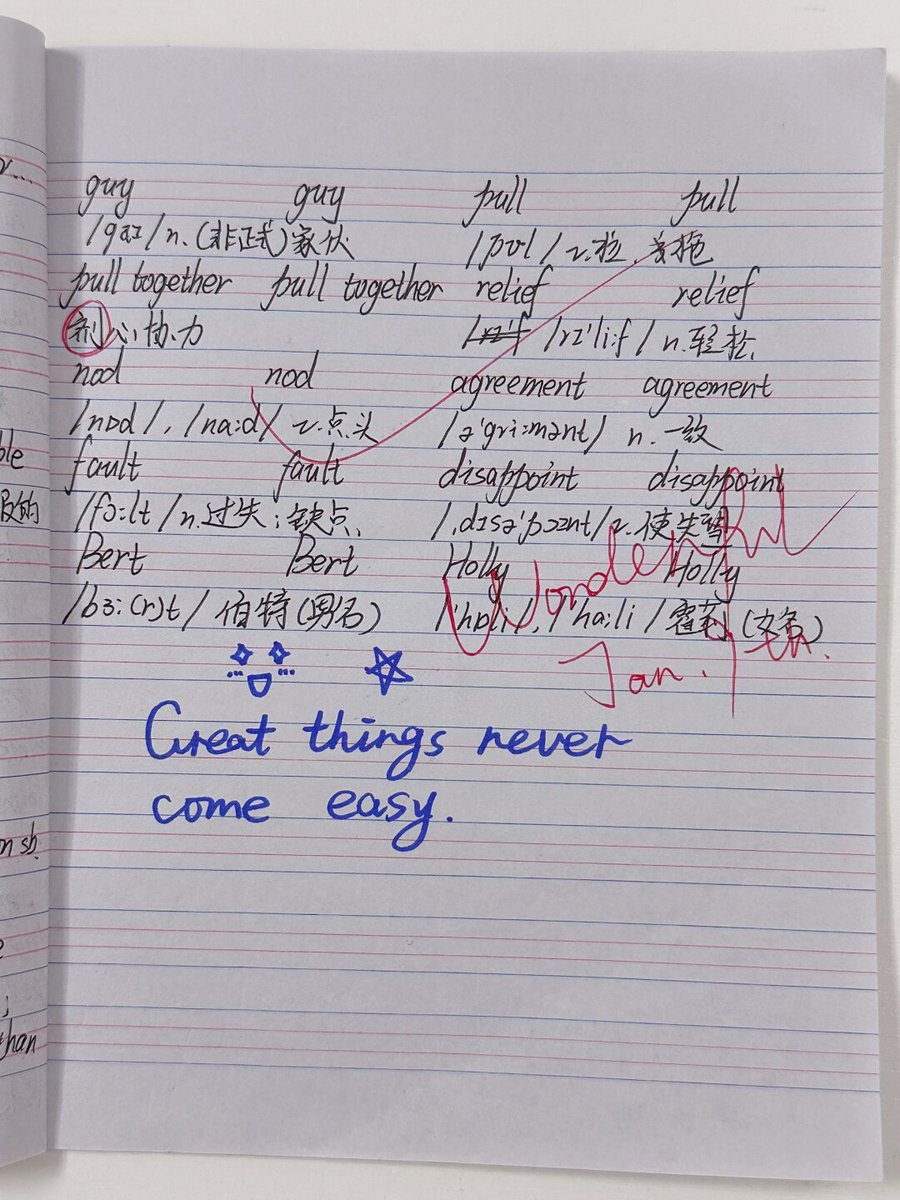 guy guy pull pull
/gaɪ/ n.(非正式)家伙 /pʊl/ v.拉
pull together pull together relief relief
心协力 /rɪ'li:f/ n.轻松
nod nod agreement agreement
/nɒd/, /na:d/ v.点头 /ə'gri:mənt/ n.一致
fault fault disappoint disappoint
/fɔ:lt/ n.过失;缺点 /,dɪsə'pɔɪnt/ v.使失望
Bert Bert Holly Holly
/bɜ:(r)t/ 伯特(男名) /'hɒli/, /'ha:li/ 霍莉(女名)
Wonderful
Jan. 9th
Great things never
come easy.
than